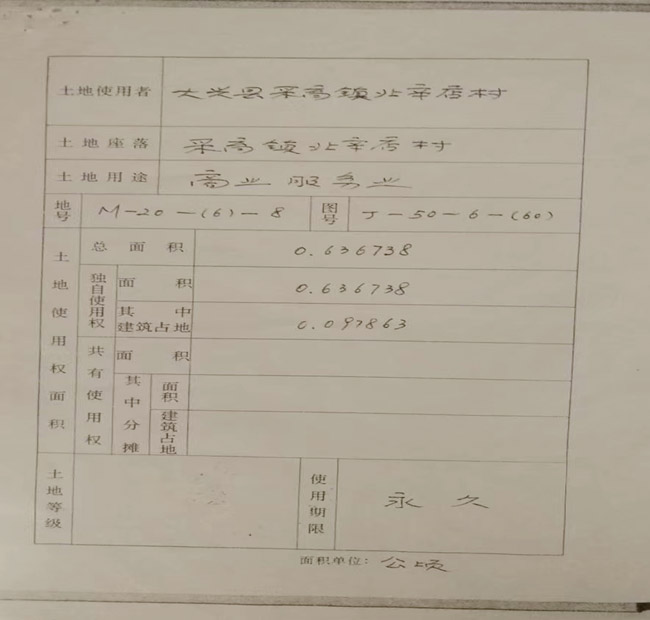 土地使用者 大兴县采育镇北辛店村
土地座落 采育镇北辛店村
土地用途 商业服务业
地号 M-20-(6)-8 图号 J-50-6-(60)
土地使用权面积
总面积 0.636738
独自使用权
面积 0.636738
其中建筑占地 0.097863
共有使用权
面积
其中分摊
面积
建筑占地
土地等级
使用期限 永久
面积单位：公顷